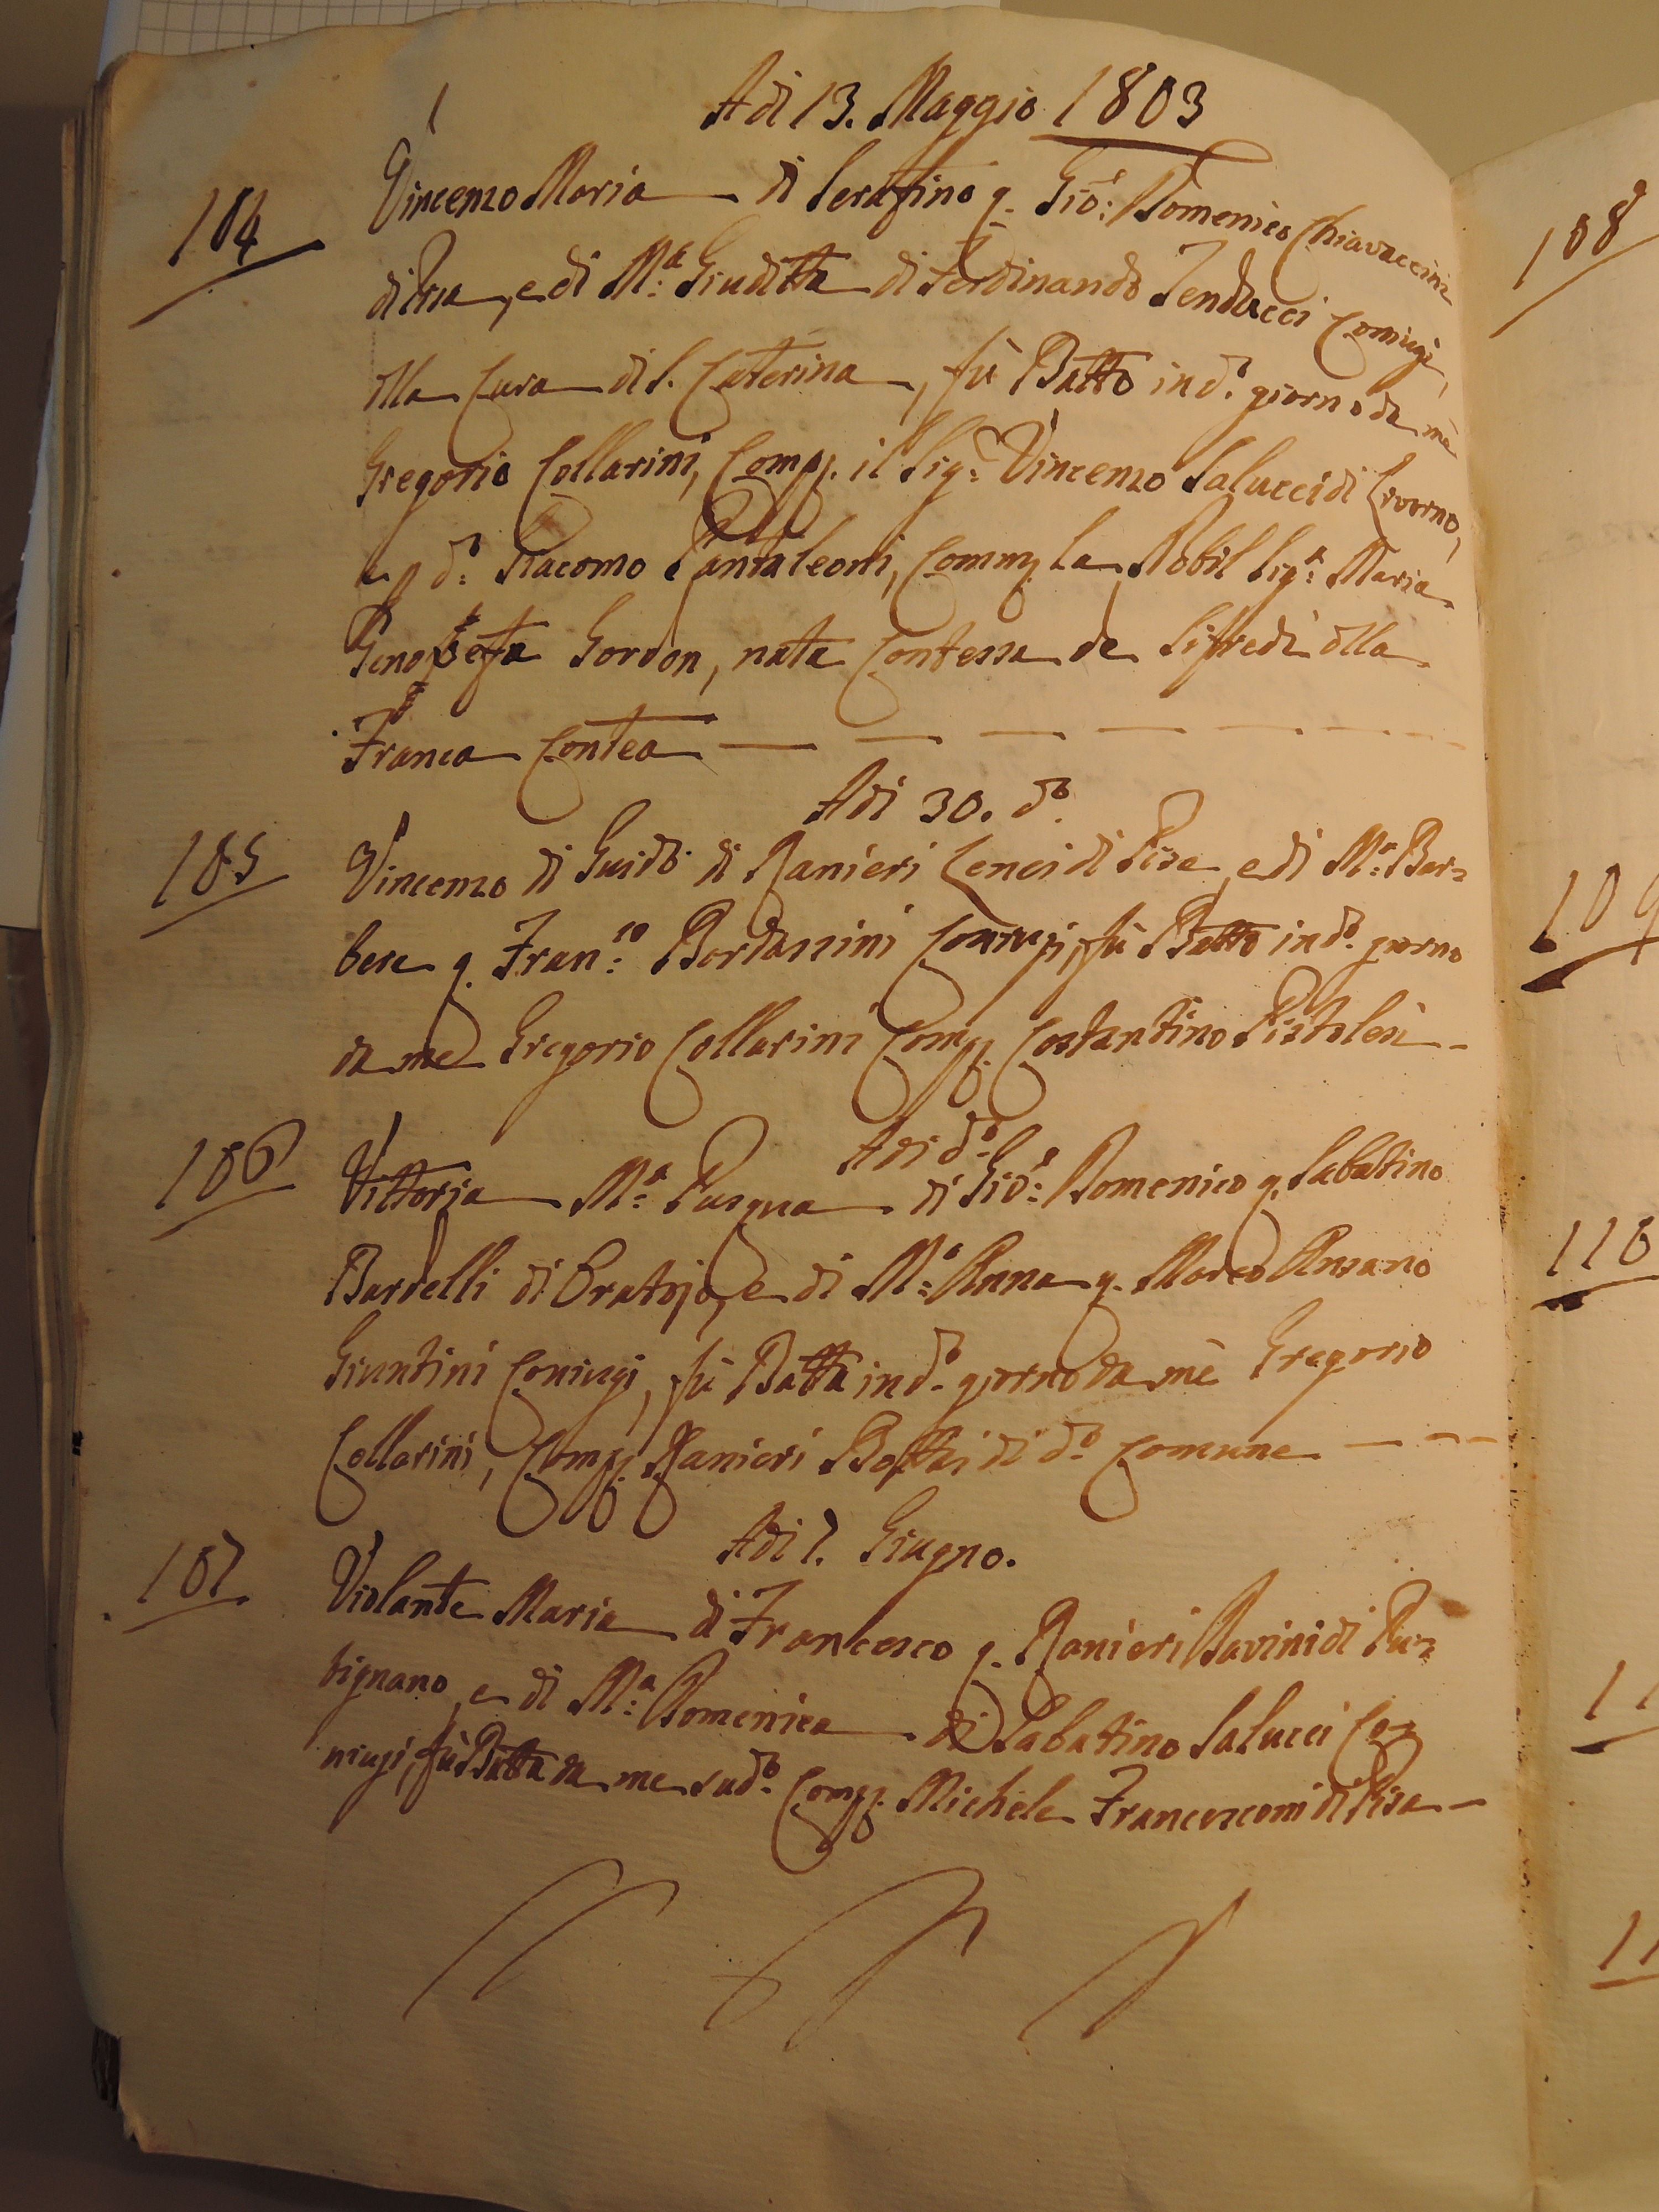 Adi 13. Maggio 1803
104
Vincenzo Maria di Serafino q. Gio: Domenico Chiavaccini
di Pisa, e di M.a Giuditta di Ferdinando Tenducci Coniugi,
dlla Cura di S. Caterina, fù Batto in do. giorno da mè
Gregorio Collarini, Comp. il Sig.r Vincenzo Salucci di Livorno,
e p do. Giacomo Pantaleoni, Comm. la Nobil Sig.ra Maria
Genoveffa Gordon, nata Contessa de Sifredi dlla
Franca Contea
Adi 30. do.
105
Vincenzo di Guido di Ranieri Lenci di Pisa, e di M.a Bar=
bera q. Fran.co Bordassini Coniugi, fù Batto in do. giorno
da me Gregorio Collarini Comp. Costantino Pistolesi
Adi do.
106
Vittoria M.a Pasqua di Gio: Domenico q. Sabatino
Bardelli di Oratojo, e di M.a Anna q. Marco Ansano
Giuntini Coniugi, fù Batta in do. giorno da mè Gregorio
Collarini, Comp. Ranieri Bottai di do. Comune
Adi 7. Giugno.
107
Violante Maria di Francesco q. Ranieri Savini di Pu=
tignano, e di M.a Domenica di Sabatino Salucci Co=
niugi, fù Batta da me sudo. Comp. Michele Francesconi di Pisa
108
109
110
11
11